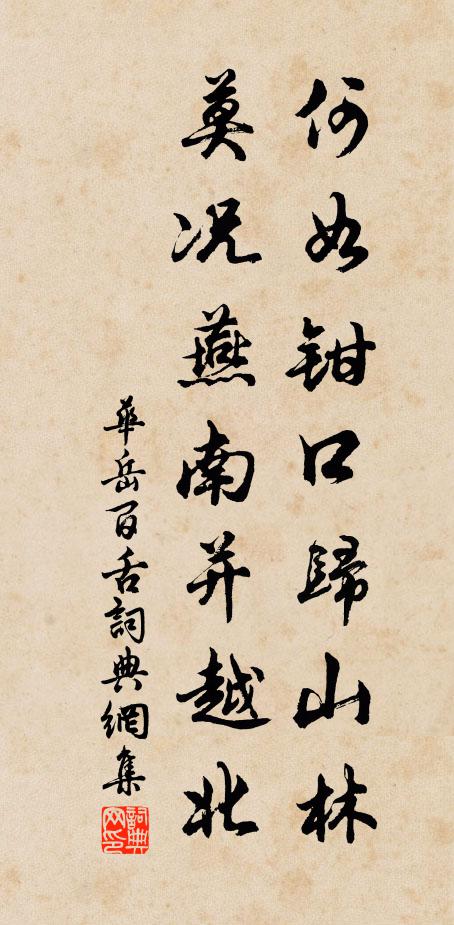 何如鉗口歸山林
莫況燕南并越北
華岳百舌詞典網集
詞典网印